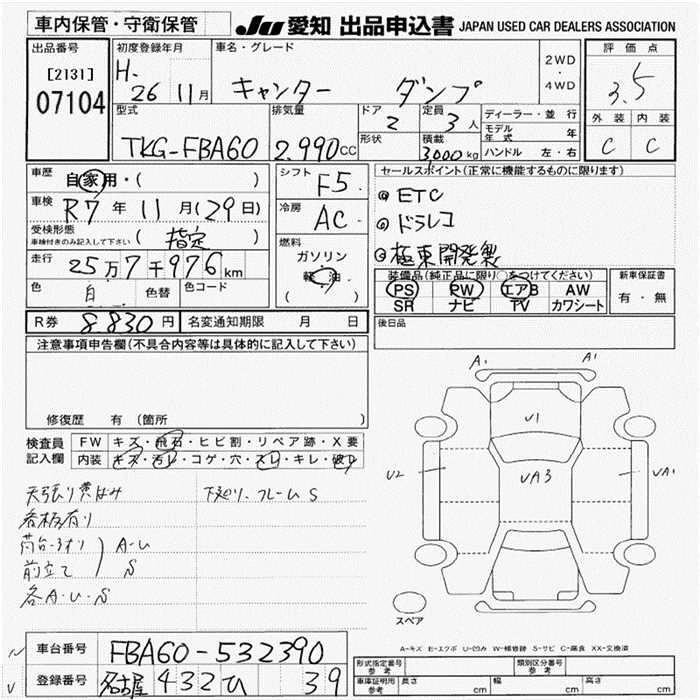 車内保管・守衛保管
JU 愛知 出品申込書 JAPAN USED CAR DEALERS ASSOCIATION
出品番号 初度登録年月 車名・グレード 評価点
[2131] H. 26 11月 キャンター ダンプ 2WD・4WD 3.5
07104
型式 排気量 ドア 定員 ディーラー・並行 外装 内装
TKG-FBA60 2.990cc 2 3人 モデル年式 年 C C
形状 積載 3,000kg ハンドル 左・右
車歴 自家用・( ) シフト F5 セールスポイント(正常に機能するものに限ります)
車検 R7年 11月(29日) 冷房 AC ◎ETC
受検形態 車検付きのみ記入して下さい (指定) ◎ドラレコ
走行 25万7千976km 燃料 ガソリン 軽油 ( ) ◎極東開発製
色 白 色替 色コード
装備品(純正品に限り○をつけてください) 新車保証書
PS PW エアB AW 有・無
SR ナビ TV カワシート
R券 8.830円 名変通知期限 月 日 後日品
注意事項申告欄(不具合内容等は具体的に記入して下さい)
修復歴 有 (箇所 )
検査員記入欄 FW キズ・飛石・ヒビ割・リペア跡・X要
内装 キズ・汚レ・コゲ・穴・スレ・キレ・破レ
A1 A1
U1
U2 UA3 UA1
天張り黄ばみ 下廻り、フレームS
看板有り
荷台-3方り A-U
前立て S
各A・U・S
スペア
A-キズ E-エクボ U-凹み W-補修跡 S-サビ C-腐食 XX-交換済
車台番号 FBA60-532390
登録番号 名古屋 432 ひ 39
形式指定番号 参考 類別区分番号 参考
車庫証明用 参考 長さ cm 幅 cm 高さ cm